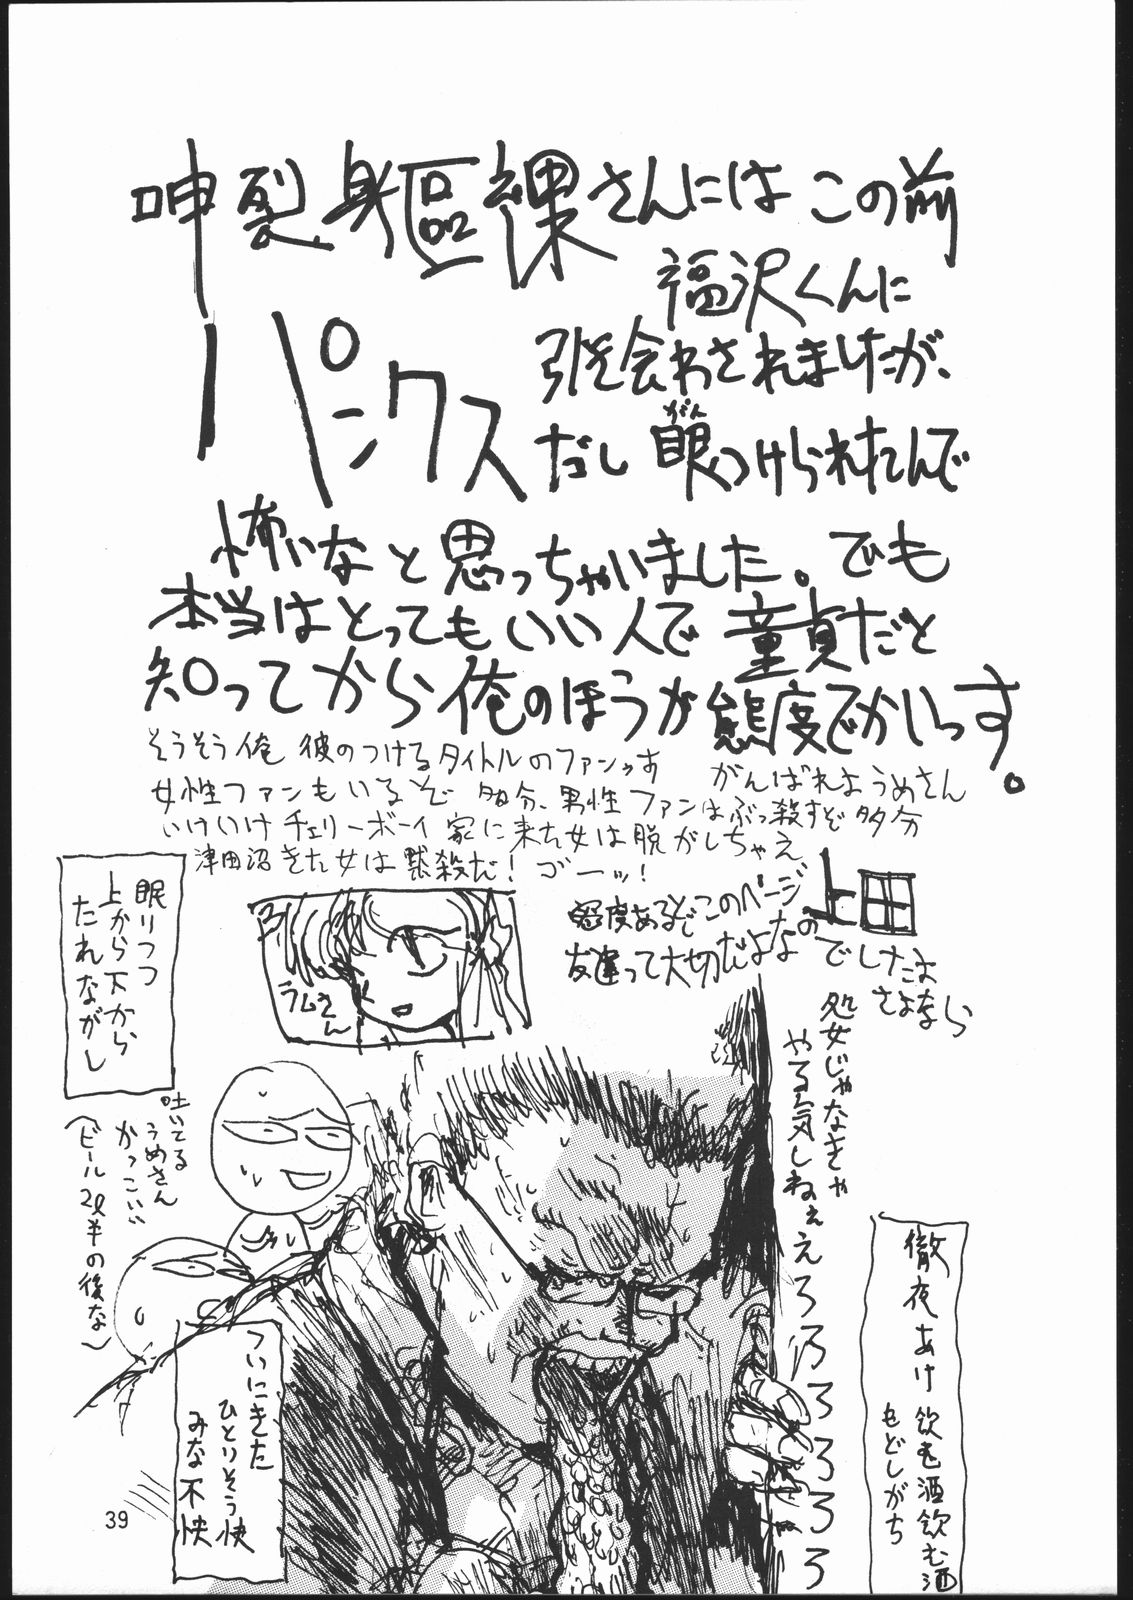 呻裂身軀裸さんにはこの前
福沢くんに
引き会わされましたが、
パンクス
だし眼つけられたんで
がん
怖いなと思っちゃいました。でも
本当はとってもいい人で童貞だと
知ってから俺のほうが態度でかいっす。
そうそう俺 彼のつけるタイトルのファンっす
がんばれようめさん
女性ファンもいるぞ 多分、男性ファンはぶっ殺すぞ多分
いけいけチェリーボーイ 家に来た女は脱がしちゃえ
津田沼きた女は黙殺だ! ゴーッ!
態度あるでこのページ
友達って大切だよなの
上田
でしたよ
さよなら
ラムさん
眠りつつ
上から下から
たれながし
吐いてる
うめさん
かっこいい
(ビール2ℓ半の後な)
処女じゃなきゃ
やる気しねぇ
えろろろろろろろ
徹夜あけ飲む酒飲む酒
もどしがち
ついにきた
ひとりそう快
みな不快
39